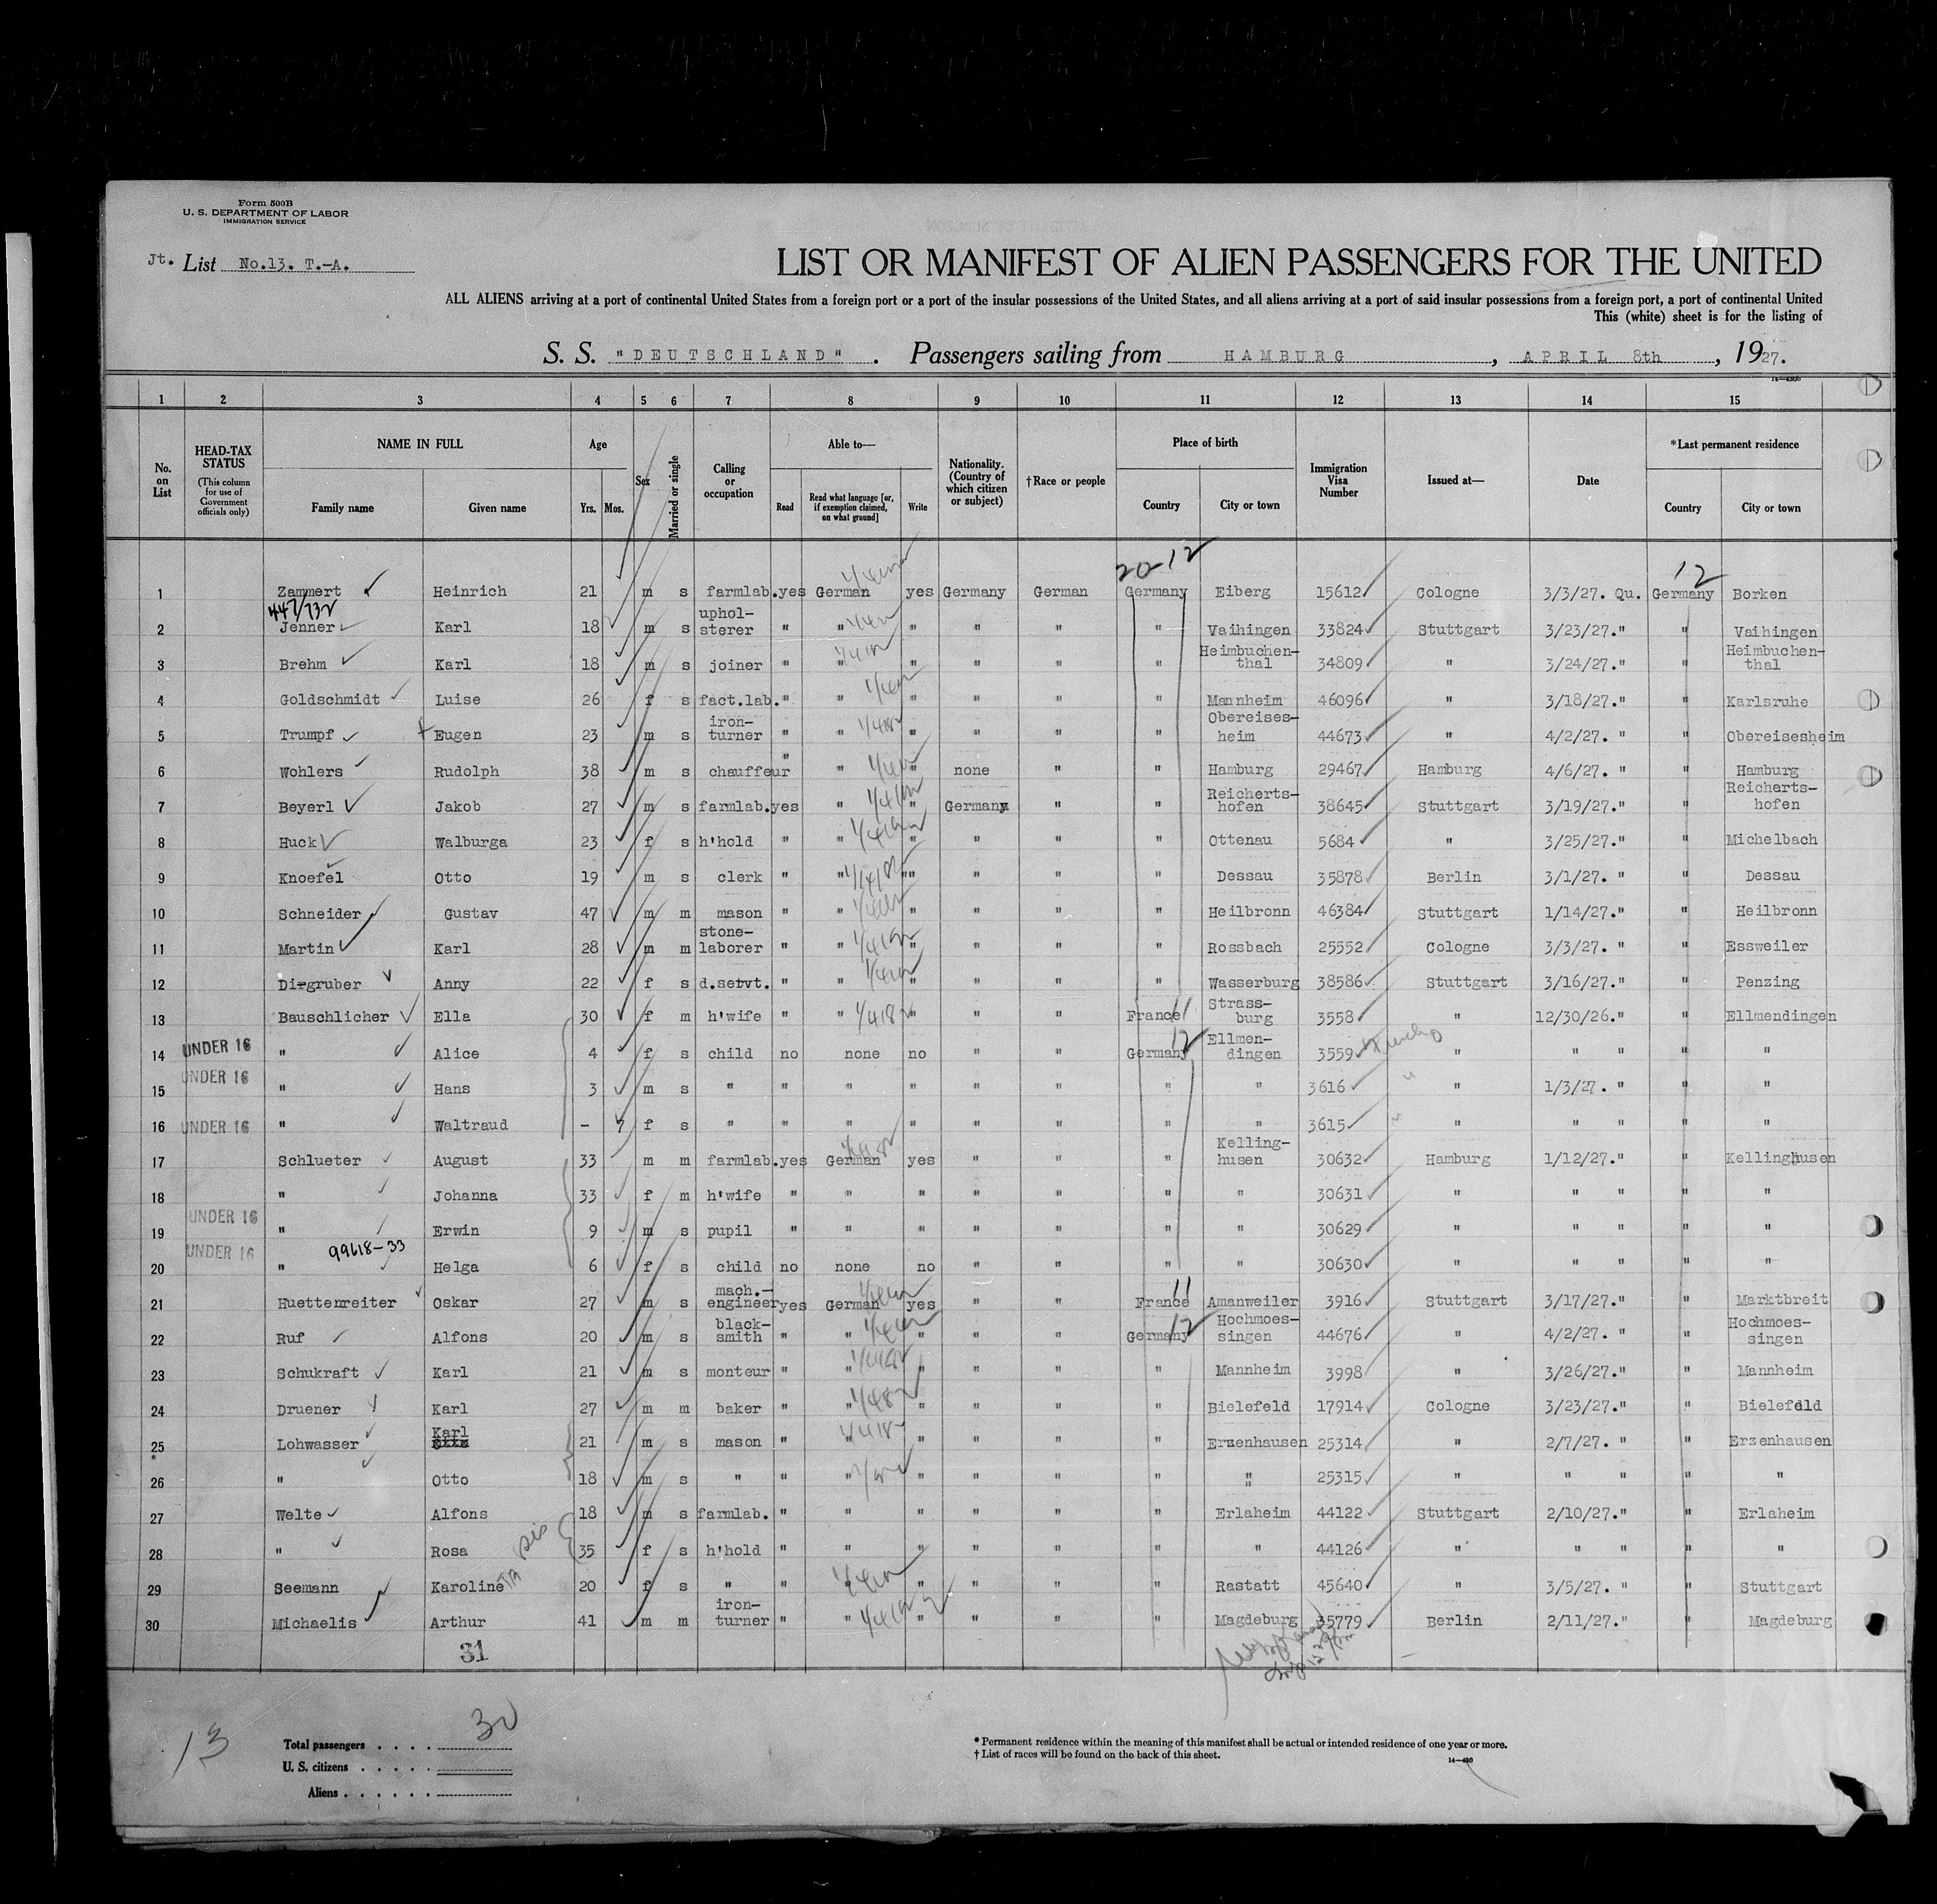 Form 500B
U. S. DEPARTMENT OF LABOR
IMMIGRATION SERVICE
Jt. List No.13. T.-A.
LIST OR MANIFEST OF ALIEN PASSENGERS FOR THE UNITED
ALL ALIENS arriving at a port of continental United States from a foreign port or a port of the insular possessions of the United States, and all aliens arriving at a port of said insular possessions from a foreign port, a port of continental United
This (white) sheet is for the listing of
S. S. "DEUTSCHLAND" . Passengers sailing from HAMBURG , APRIL 8th , 1927.
1 2 3 4 5 6 7 8 9 10 11 12 13 14 15
No. on List
HEAD-TAX STATUS (This column for use of Government officials only)
NAME IN FULL Family name Given name
Age Yrs. Mos.
Sex
Married or single
Calling or occupation
Able to— Read Read what language [or, if exemption claimed, on what ground] Write
Nationality. (Country of which citizen or subject)
†Race or people
Place of birth Country City or town
Immigration Visa Number
Issued at—
Date
*Last permanent residence Country City or town
20-12 12
1 Zammert Heinrich 21 m s farmlab. yes German yes Germany German Germany Eiberg 15612 Cologne 3/3/27. Qu. Germany Borken
447/732
2 Jenner Karl 18 m s uphol-sterer " " " " " " Vaihingen 33824 Stuttgart 3/23/27. " " Vaihingen
3 Brehm Karl 18 m s joiner " " " " " " Heimbuchen-thal 34809 " 3/24/27. " " Heimbuchen-thal
4 Goldschmidt Luise 26 f s fact.lab. " " " " " " Mannheim 46096 " 3/18/27. " " Karlsruhe
5 Trumpf Eugen 23 m s iron-turner " " " " " " Obereises-heim 44673 " 4/2/27. " " Obereisesheim
6 Wohlers Rudolph 38 m s chauffeur " " " none " " Hamburg 29467 Hamburg 4/6/27. " " Hamburg
7 Beyerl Jakob 27 m s farmlab. yes " " Germany " " Reicherts-hofen 38645 Stuttgart 3/19/27. " " Reicherts-hofen
8 Huck Walburga 23 f s h'hold " " " " " " Ottenau 5684 " 3/25/27. " " Michelbach
9 Knoefel Otto 19 m s clerk " " "" " " " Dessau 35878 Berlin 3/1/27. " " Dessau
10 Schneider Gustav 47 m m mason " " " " " " Heilbronn 46384 Stuttgart 1/14/27. " " Heilbronn
11 Martin Karl 28 m m stone-laborer " " " " " " Rossbach 25552 Cologne 3/3/27. " " Essweiler
12 Dirgruber Anny 22 f s d.setvt. " " " " " " Wasserburg 38586 Stuttgart 3/16/27. " " Penzing
13 Bauschlicher Ella 30 f m h'wife " " " " " France 11 Strass-burg 3558 " 12/30/26. " " Ellmendingen
14 UNDER 16 " Alice 4 f s child no none no " " Germany 12 Ellmen-dingen 3559 " " " " "
15 UNDER 16 " Hans 3 m s " " " " " " " " 3616 " 1/3/27. " " "
16 UNDER 16 " Waltraud - 7 f s " " " " " " " " 3615 " " " " "
17 Schlueter August 33 m m farmlab. yes German yes " " " Kelling-husen 30632 Hamburg 1/12/27. " " Kellinghusen
18 " Johanna 33 f m h'wife " " " " " " " 30631 " " " " "
19 UNDER 16 " Erwin 9 m s pupil " " " " " " " 30629 " " " " "
99618-33
20 UNDER 16 " Helga 6 f s child no none no " " " " 30630 " " " " "
21 Huettenreiter Oskar 27 m s mach.-engineer yes German yes " " France 11 Amanweiler 3916 Stuttgart 3/17/27. " " Marktbreit
22 Ruf Alfons 20 m s black-smith " " " " " Germany 12 Hochmoes-singen 44676 " 4/2/27. " " Hochmoes-singen
23 Schukraft Karl 21 m s monteur " " " " " " Mannheim 3998 " 3/26/27. " " Mannheim
24 Druener Karl 27 m m baker " " " " " " Bielefeld 17914 Cologne 3/23/27. " " Bielefeld
25 Lohwasser Karl 21 m s mason " " " " " " Erzenhausen 25314 " 2/7/27. " " Erzenhausen
26 " Otto 18 m s " " " " " " " " 25315 " " " " "
27 Welte Alfons 18 m s farmlab. " " " " " " Erlaheim 44122 Stuttgart 2/10/27. " " Erlaheim
28 " Rosa sis 35 f s h'hold " " " " " " " 44126 " " " " "
29 Seemann Karoline 20 f s " " " " " " " Rastatt 45640 " 3/5/27. " " Stuttgart
30 Michaelis Arthur 41 m m iron-turner " " " " " " Magdeburg 35779 Berlin 2/11/27. " " Magdeburg
31
13
Total passengers . . . . 30
U. S. citizens . . . . .
Aliens . . . . . .
* Permanent residence within the meaning of this manifest shall be actual or intended residence of one year or more.
† List of races will be found on the back of this sheet.